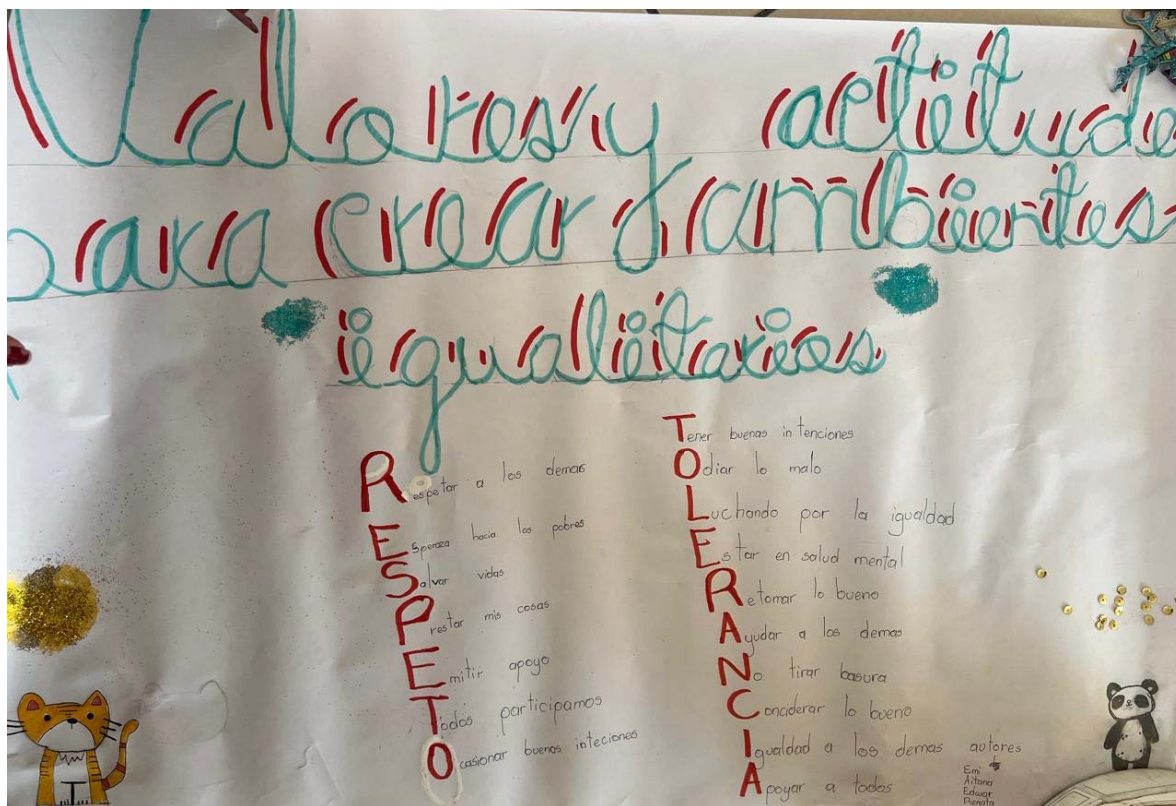 Valores y actitude
para crear ambientes
igualitarios
Respetar a los demas
Esperaza hacia los pobres
Salvar vidas
Prestar mis cosas
Emitir apoyo
Todos participamos
Ocasionar buenas inteciones
Tener buenas intenciones
Odiar lo malo
Luchando por la igualdad
Estar en salud mental
Retomar lo bueno
Ayudar a los demas
No tirar basura
Conciderar lo bueno
Igualdad a los demas
Apoyar a todos
autores
Emi
Aitana
Edwar
Renata